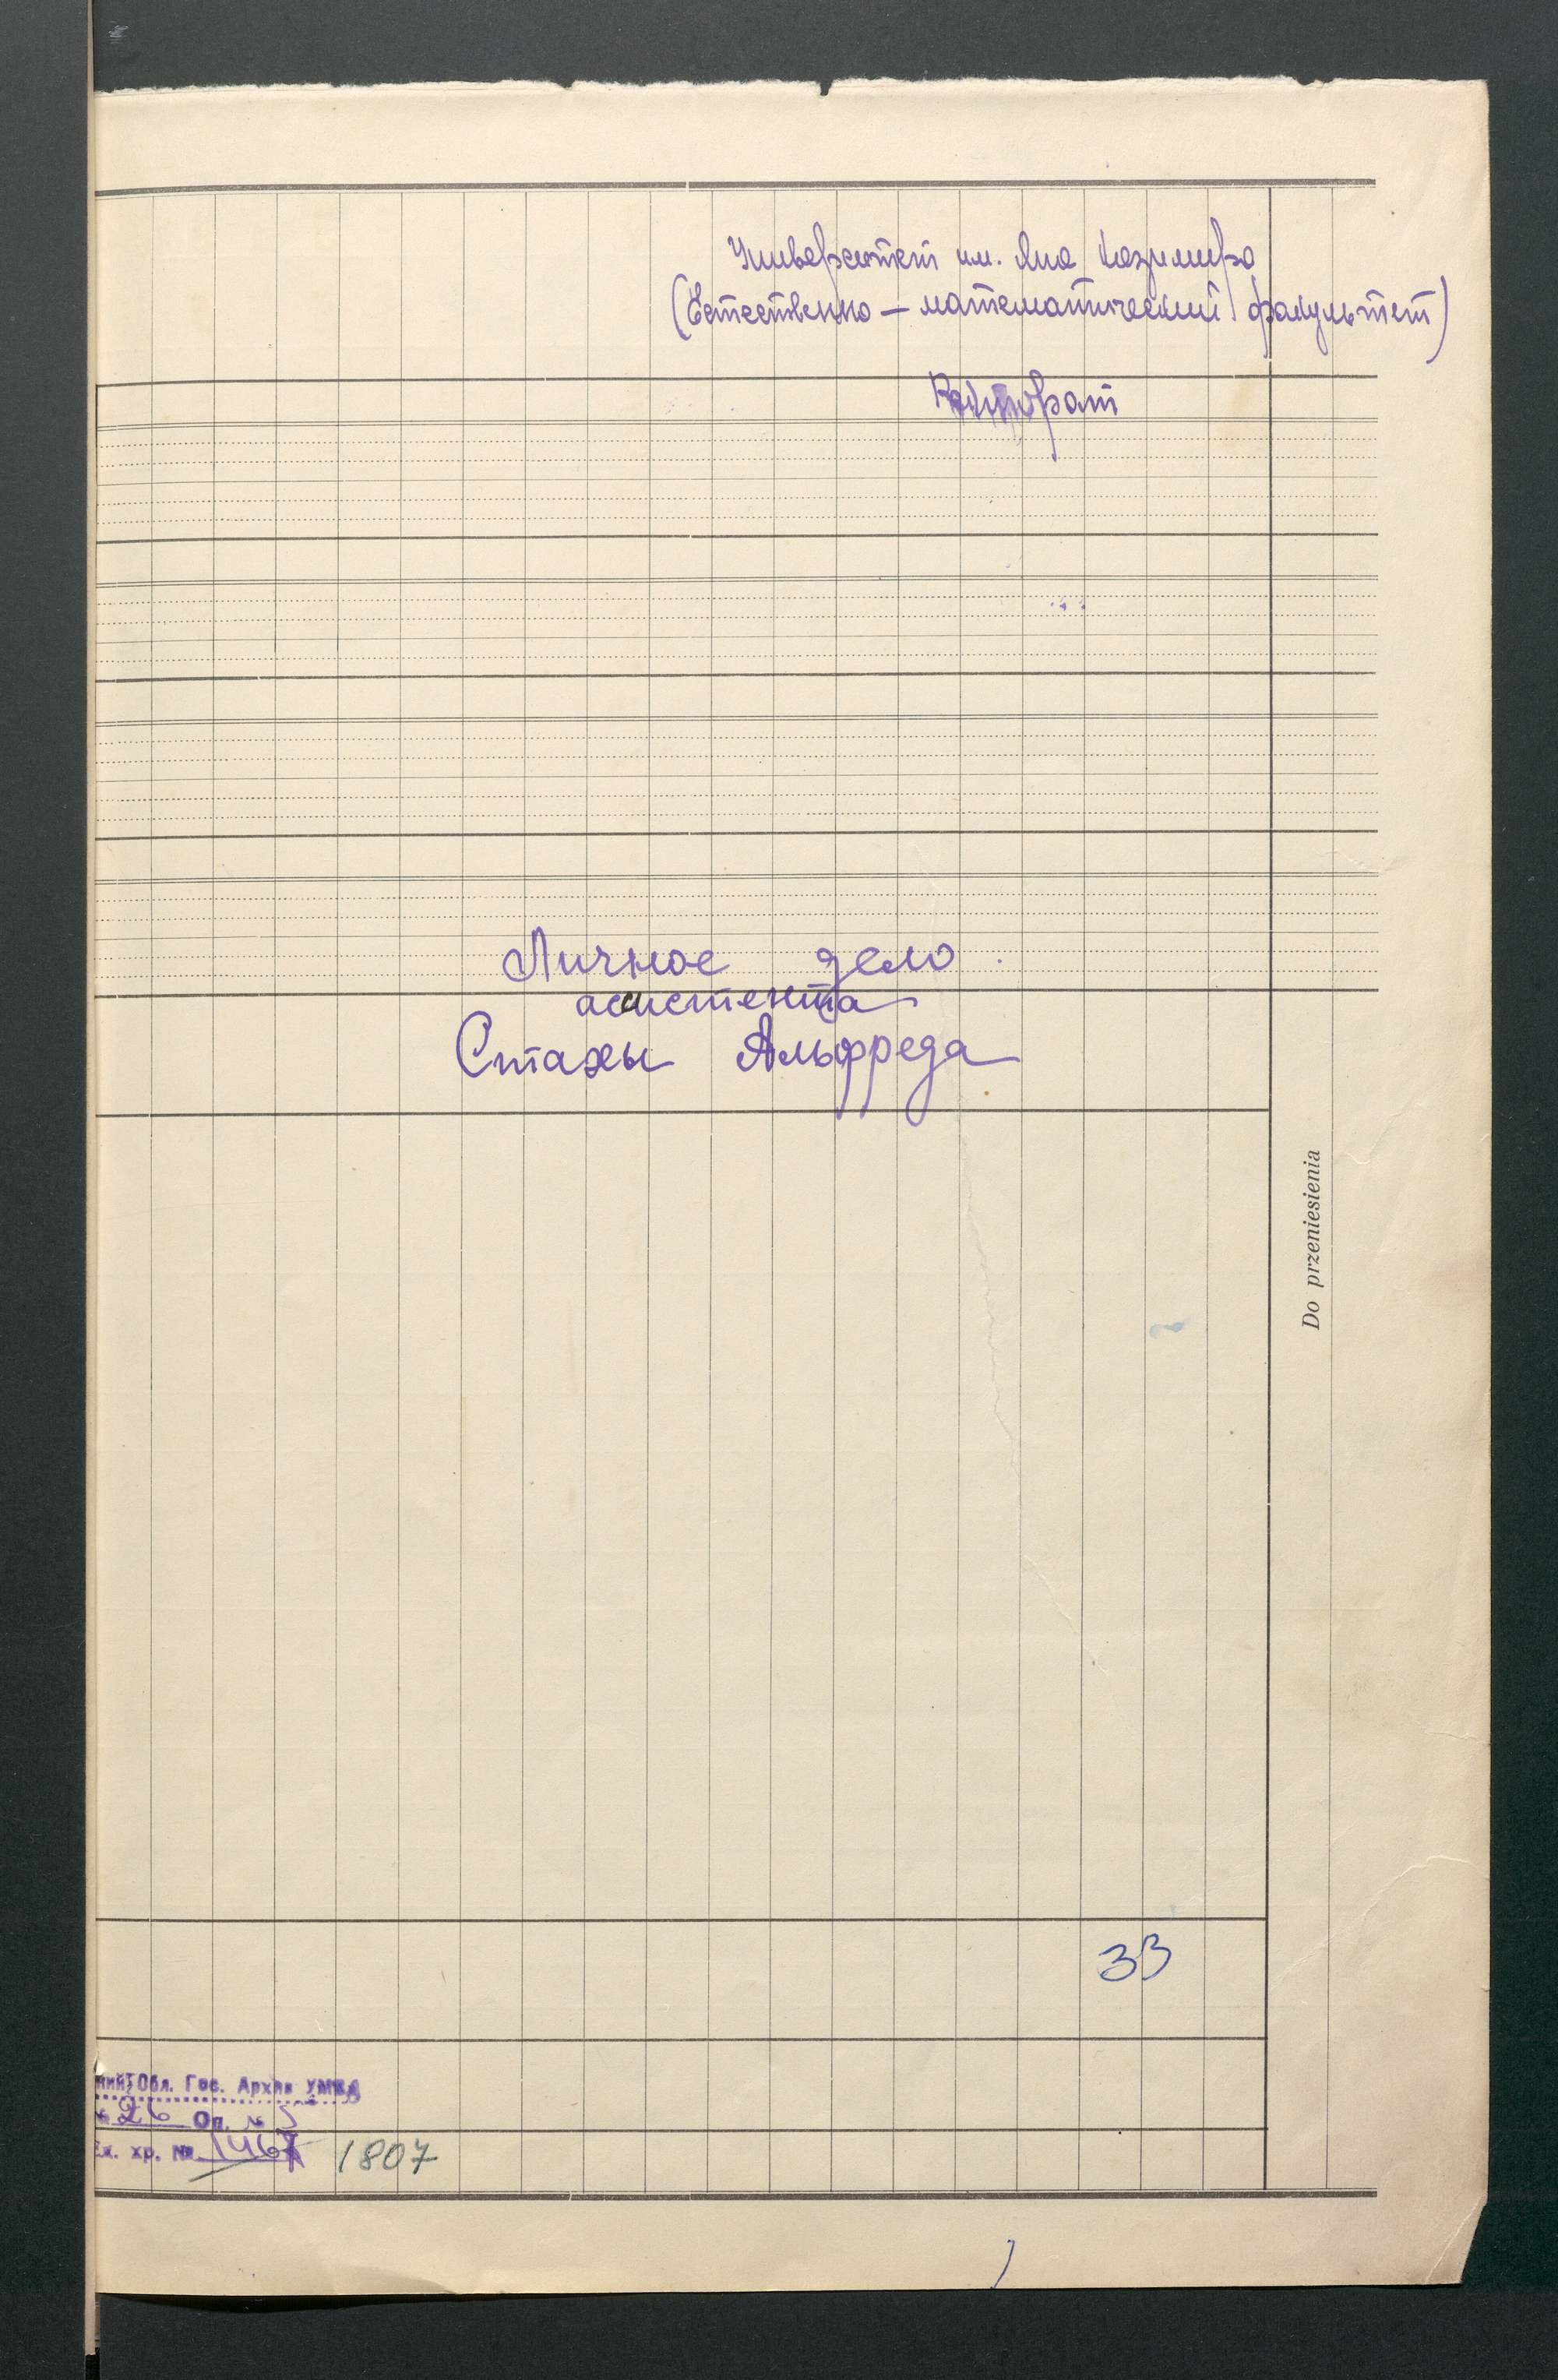 Университет им. Яна Казимира
(Естественно — математический факультет)
Ректорат
Личное дело
асистента
Стахы Альфреда
Do przeniesienia
33
ний Обл. Гос. Архив УМВД
№ 26 Оп. № 5
Ед. хр. № 1467 1807